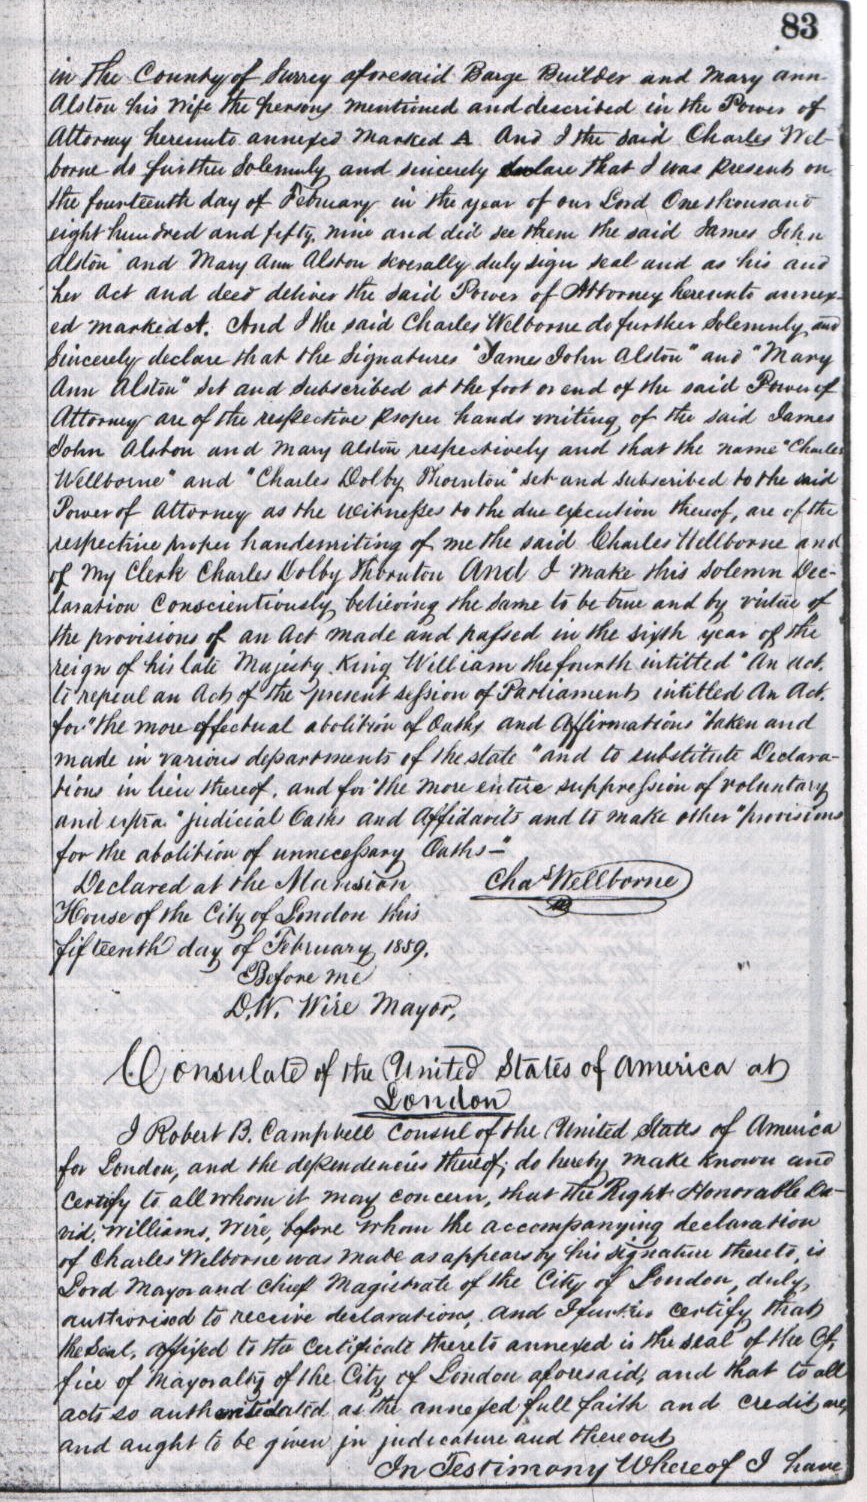 83
in the County of Surrey aforesaid Barge Builder and Mary ann
Alston his Wife the persons mentioned and described in the Power of
Attorney hereunto annexed marked A And I the said Charles Wel-
borne do further Solemnly and sincerely declare that I was present on
the fourteenth day of February in the year of our Lord One thousand
eight hundred and fifty, nine and did see them the said James John
Alston and Mary Ann Alston severally duly sign seal and as his and
her Act and deed deliver the said Power of Attorney hereunto annex-
ed marked A. And I the said Charles Welborne do further Solemnly and
Sincerely declare that the Signatures "James John Alston" and "Mary
Ann Alston" set and subscribed at the foot or end of the said Power of
Attorney are of the respective proper hands writing of the said James
John Alston and Mary Alston respectively and that the name "Charles
Wellborne" and "Charles Dolby Thornton" set and subscribed to the said
Power of Attorney as the witnesses to the due execution thereof, are of the
respective proper handwriting of me the said Charles Wellborne and
of my Clerk Charles Dolby Thornton And I make this solemn Dec-
laration Conscientiously believing the same to be true and by virtue of
the provisions of an Act made and passed in the sixth year of the
reign of his late Majesty King William the fourth intitled "An act
to repeal an Act of the "present session of Parliament intitled An Act.
for "the more effectual abolition of Oaths and Affirmations "taken and
made in various departments of the state "and to substitute Declara-
tions in lieu thereof. and for "the more entire suppression of voluntary
and extra "judicial Oaths and Affidavits and to make other "provisions
for the abolition of unnecessary Oaths—"
Declared at the Mansion Chas Wellborne
House of the City of London this
fifteenth day of February 1859.
Before me
D.W. Wire Mayor,
Consulate of the United States of America at
London
I Robert B. Campbell Consul of the United States of America
for London, and the dependencies thereof; do hereby make known and
certify to all whom it may concern, that the Right Honorable Da-
vid, Williams, Wire, before whom the accompanying declaration
of Charles Welborne was made as appears by his signature thereto, is
Lord Mayor and Chief Magistrate of the City of London, duly,
authorised to receive declarations, and I further certify that
the Seal, affixed to the Certificate thereto annexed is the seal of the Of,
fice of Mayoralty of the City of London aforesaid, and that to all
acts so as the annexed full faith and credit are,
and aught to be given in judicature and thereout
In Testimony Whereof I have